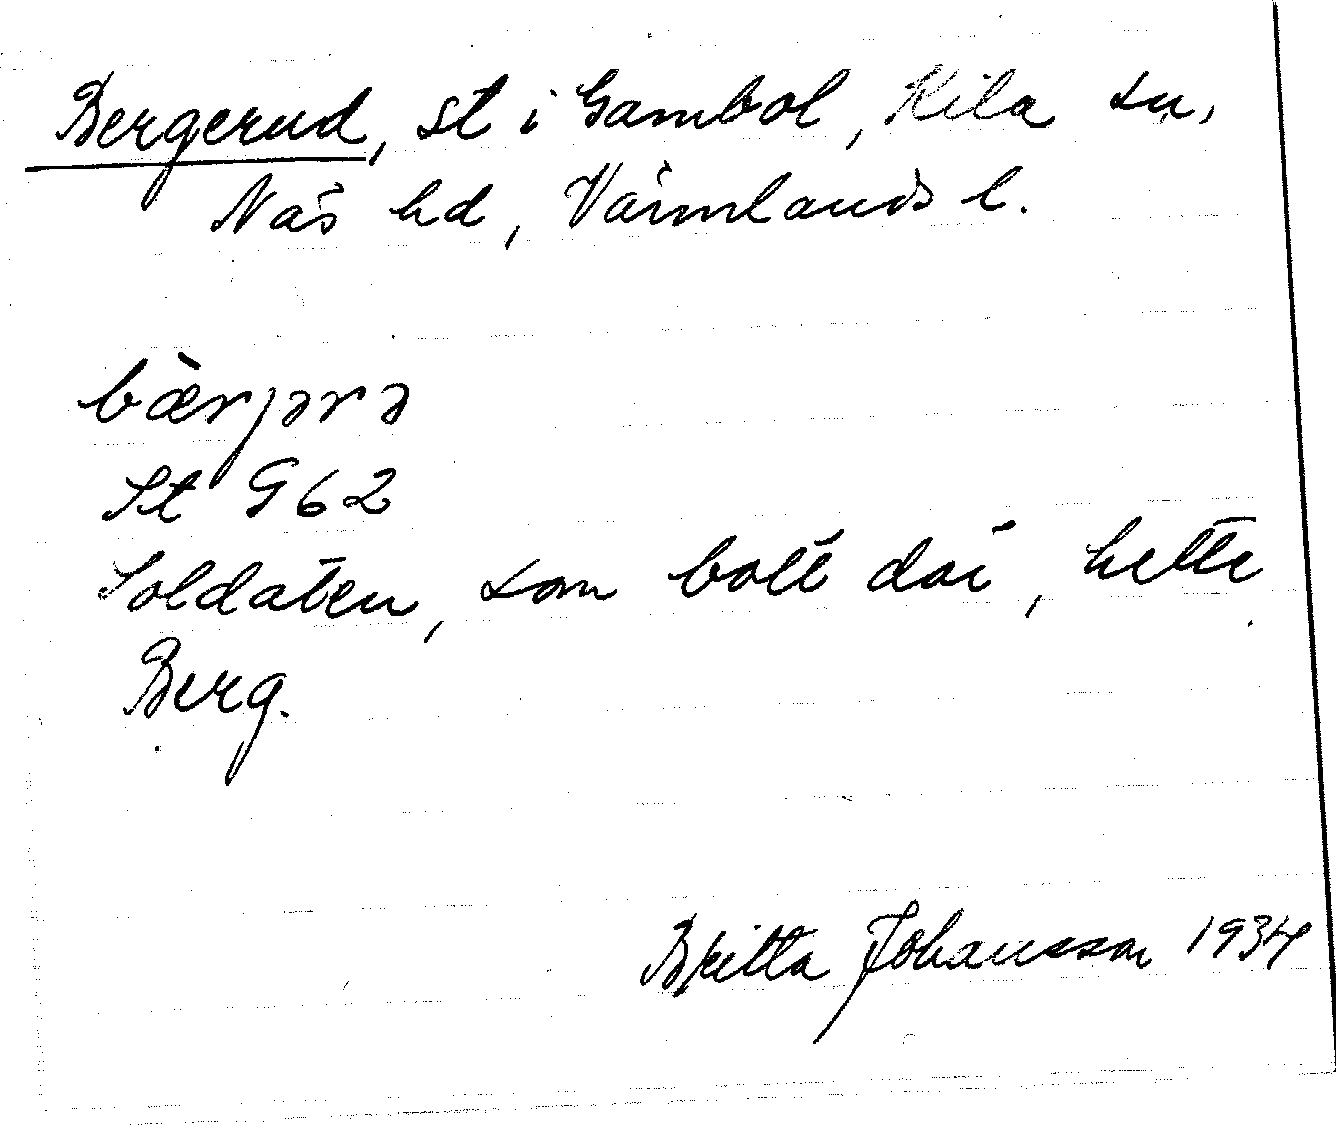 Bergerud, st i Gambol, Kila sn,
Näs hd, Värmlands l.
bæ̀rjərə
St G 62
Soldaten, som bott där, hette
Berg.
Britta Johansson 1934